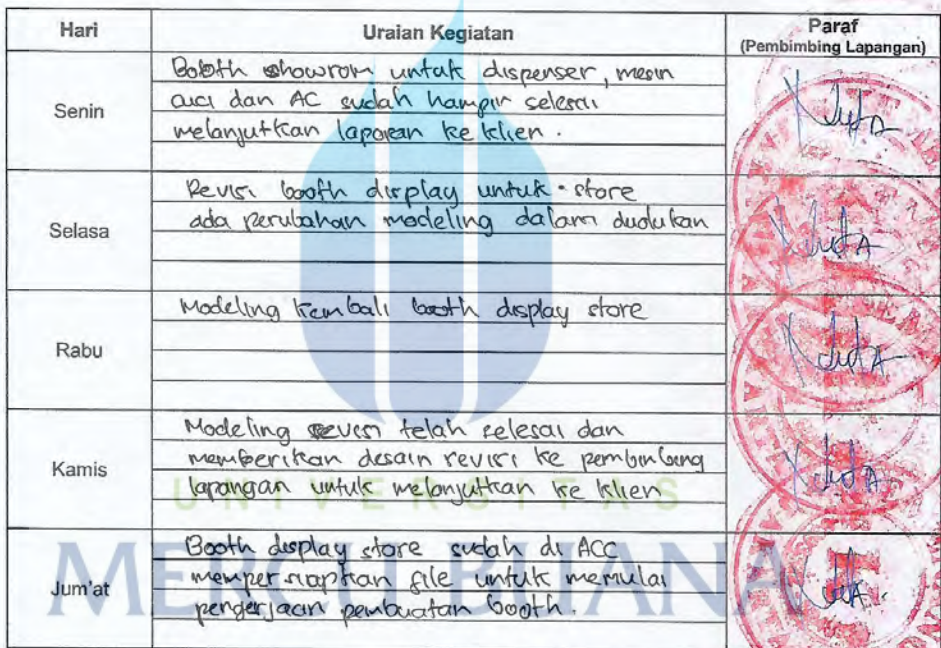 Hari
Uraian Kegiatan
Paraf
(Pembimbing Lapangan)
Senin
Booth showrom untuk dispenser, mesin
cuci dan AC sudah hampir selesai
melanjutkan laporan ke klien.
Selasa
Revisi booth display untuk store
ada perubahan modeling dalam dudukan
Rabu
Modeling kembali booth display store
Kamis
Modeling revisi telah selesai dan
memberikan desain revisi ke pembimbing
lapangan untuk melanjutkan ke klien
Jum'at
Booth display store sudah di ACC
mempersiapkan file untuk memulai
pengerjaan pembuatan booth.
UNIVERSITAS
MERCU BUANA